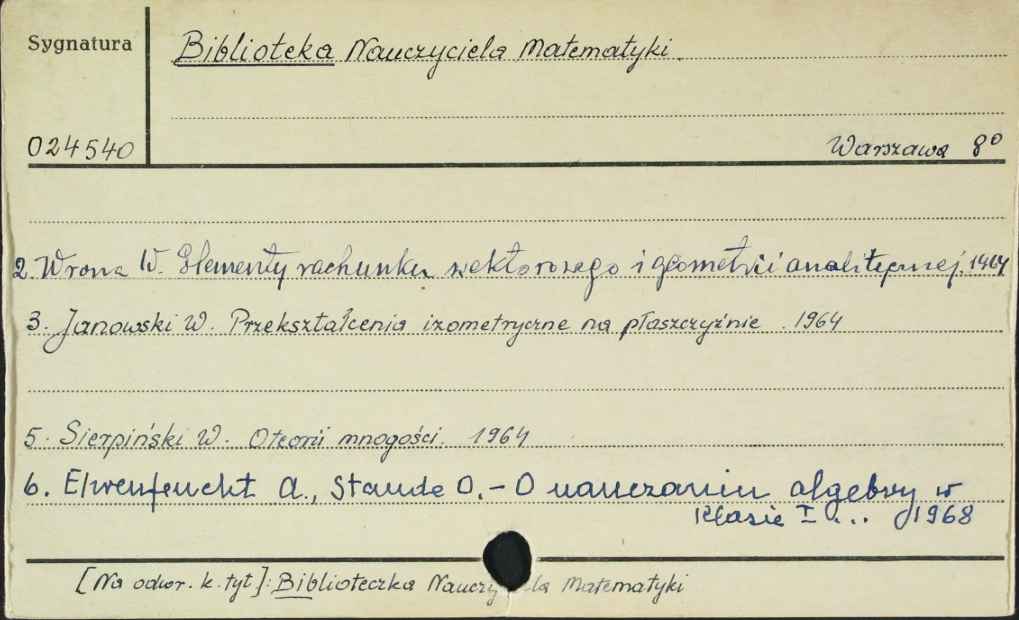 Sygnatura
Biblioteka Nauczyciela Matematyki.
024540
Warszawa 8°
2. Wrona W. Elementy rachunku wektorowego i geometrii analitycznej. 1964
3. Janowski W. Przekształcenia izometryczne na płaszczyźnie. 1964
5. Sierpiński W. O teorii mnogości. 1964
6. Ehrenfeucht A., Stande O. - O nauczaniu algebry w
klasie I ... 1968
[Na odwr. k. tyt]: Biblioteczka Nauczyciela Matematyki